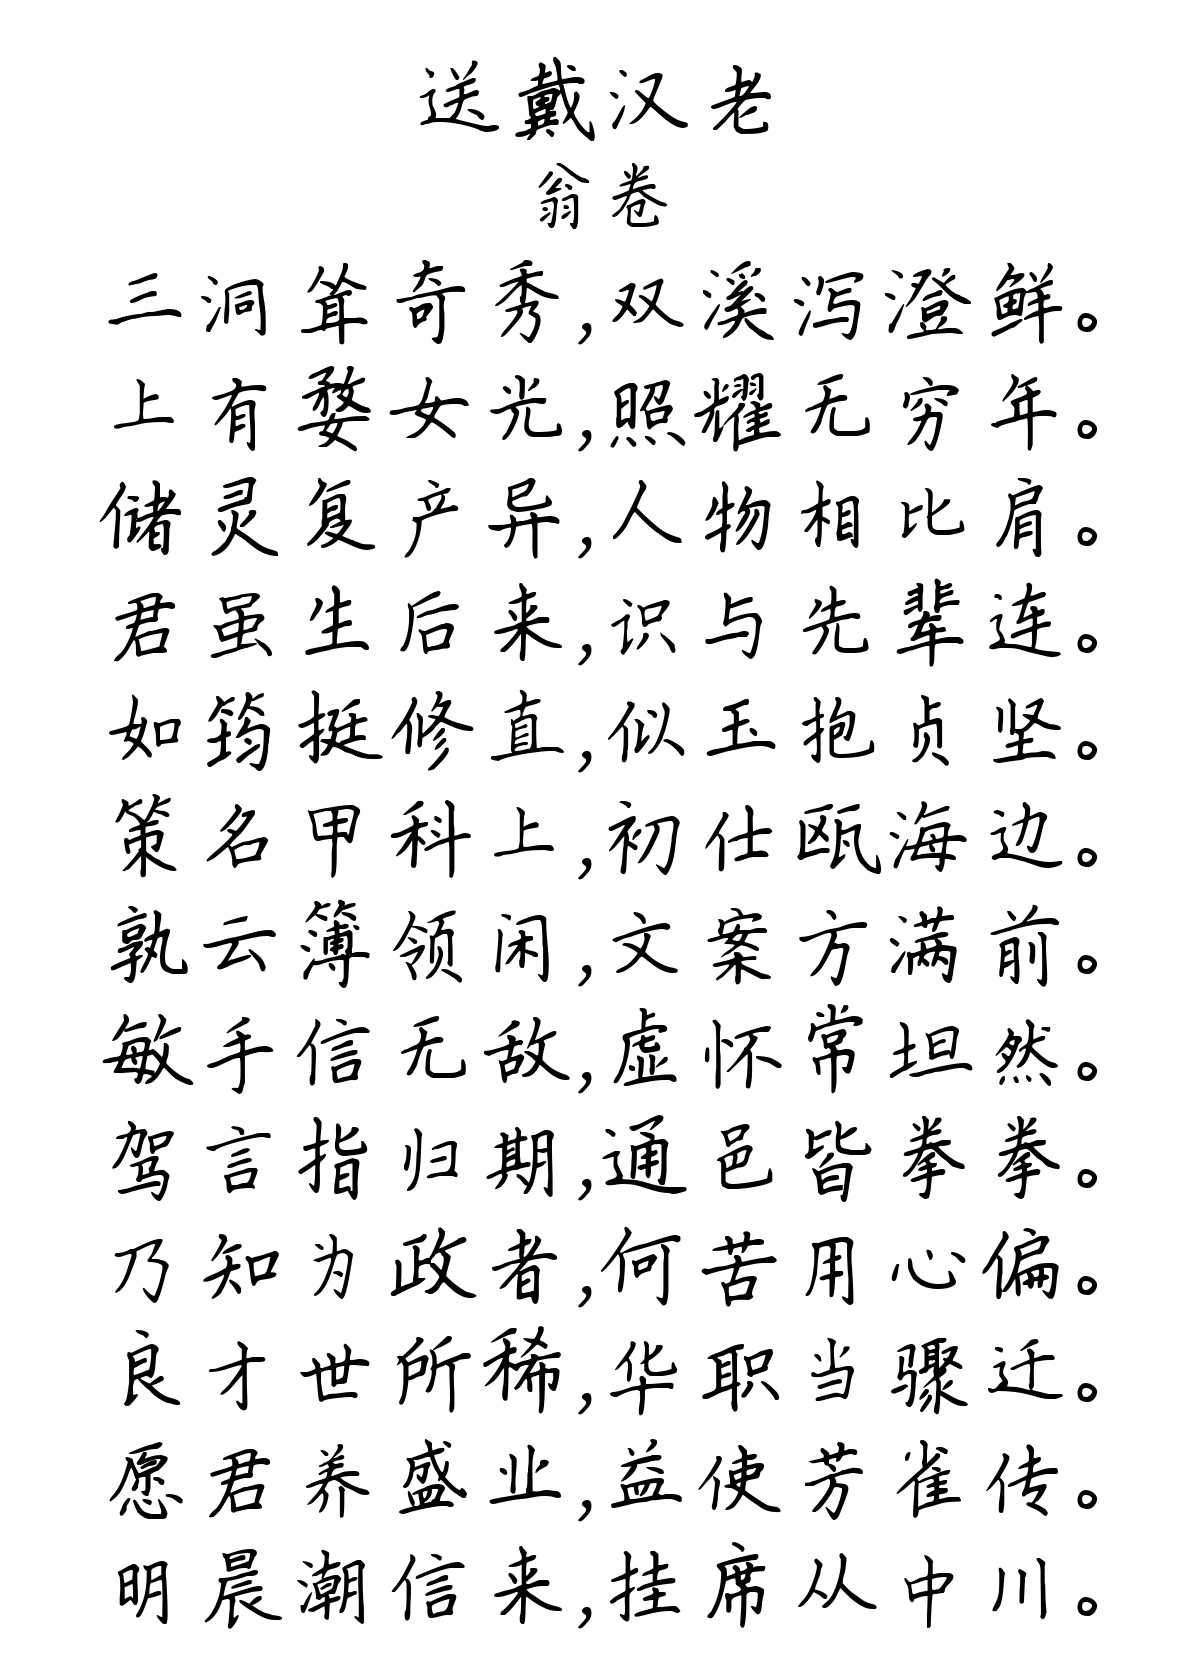 送戴汉老
翁卷
三洞耸奇秀,双溪泻澄鲜。
上有婺女光,照耀无穷年。
储灵复产异,人物相比肩。
君虽生后来,识与先辈连。
如筠挺修直,似玉抱贞坚。
策名甲科上,初仕瓯海边。
孰云簿领闲,文案方满前。
敏手信无敌,虚怀常坦然。
驾言指归期,通邑皆拳拳。
乃知为政者,何苦用心偏。
良才世所稀,华职当骤迁。
愿君养盛业,益使芳雀传。
明晨潮信来,挂席从中川。